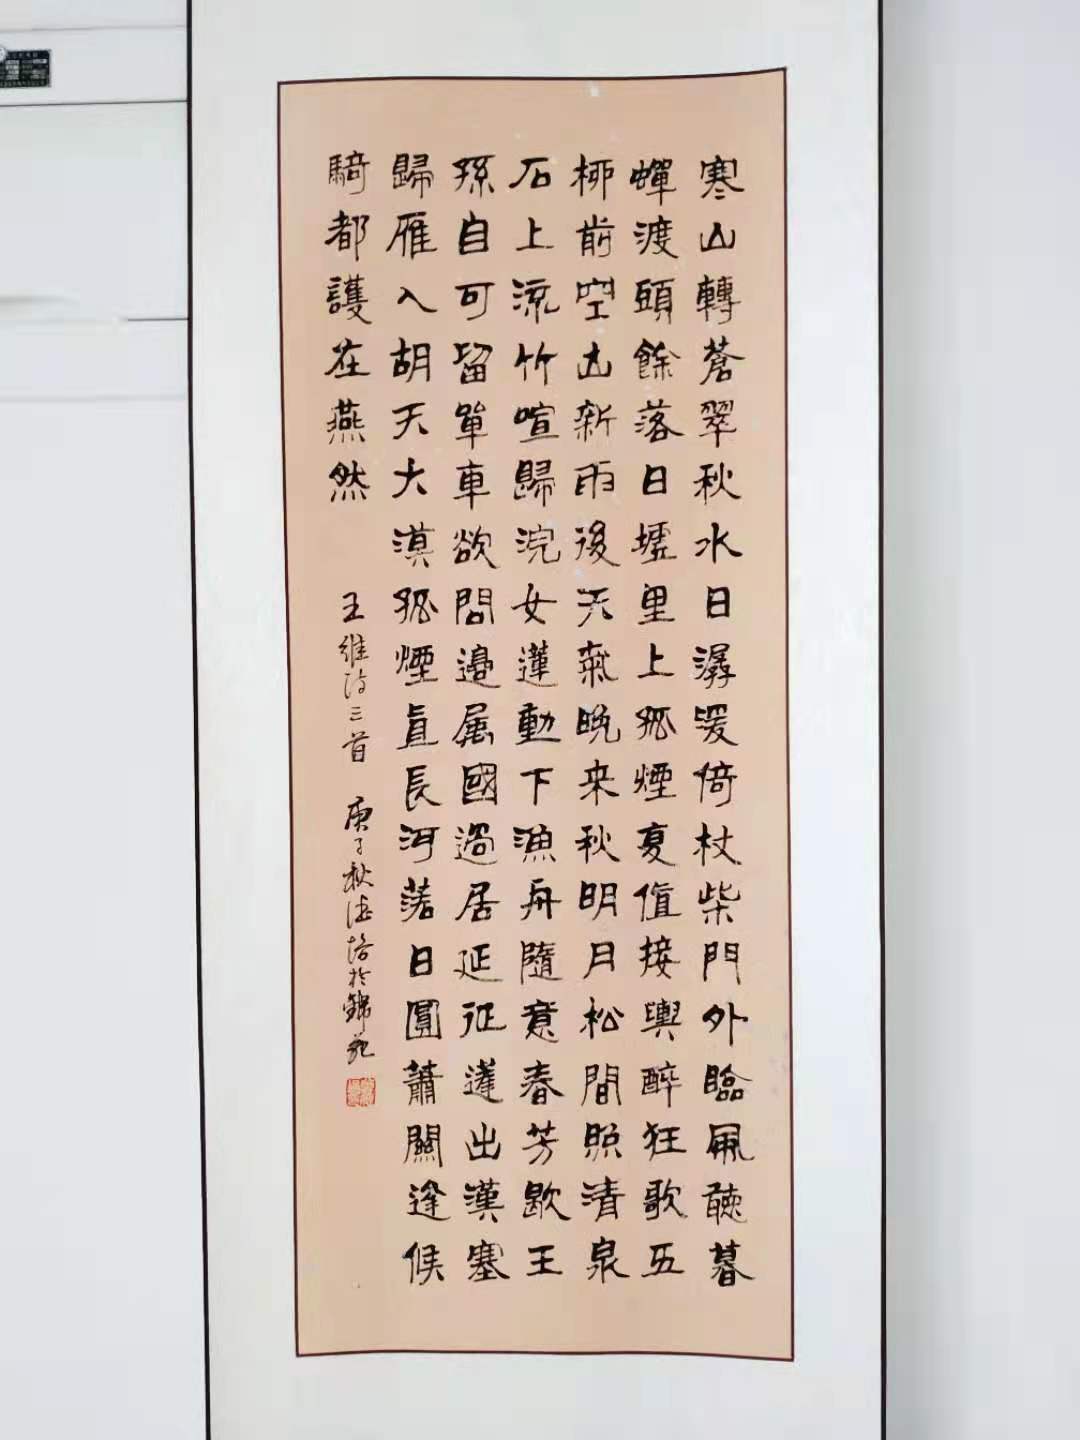 寒山轉蒼翠秋水日潺湲倚杖柴門外臨風聽暮
蟬渡頭餘落日墟里上孤煙復值接輿醉狂歌五
柳前空山新雨後天氣晚来秋明月松間照清泉
石上流竹喧歸浣女蓮動下漁舟隨意春芳歇王
孫自可留單車欲問邊属國過居延征蓬出漢塞
歸雁入胡天大漠孤煙直長河落日圓蕭關逢候
騎都護在燕然
王維诗三首 庚子秋 於錦苑